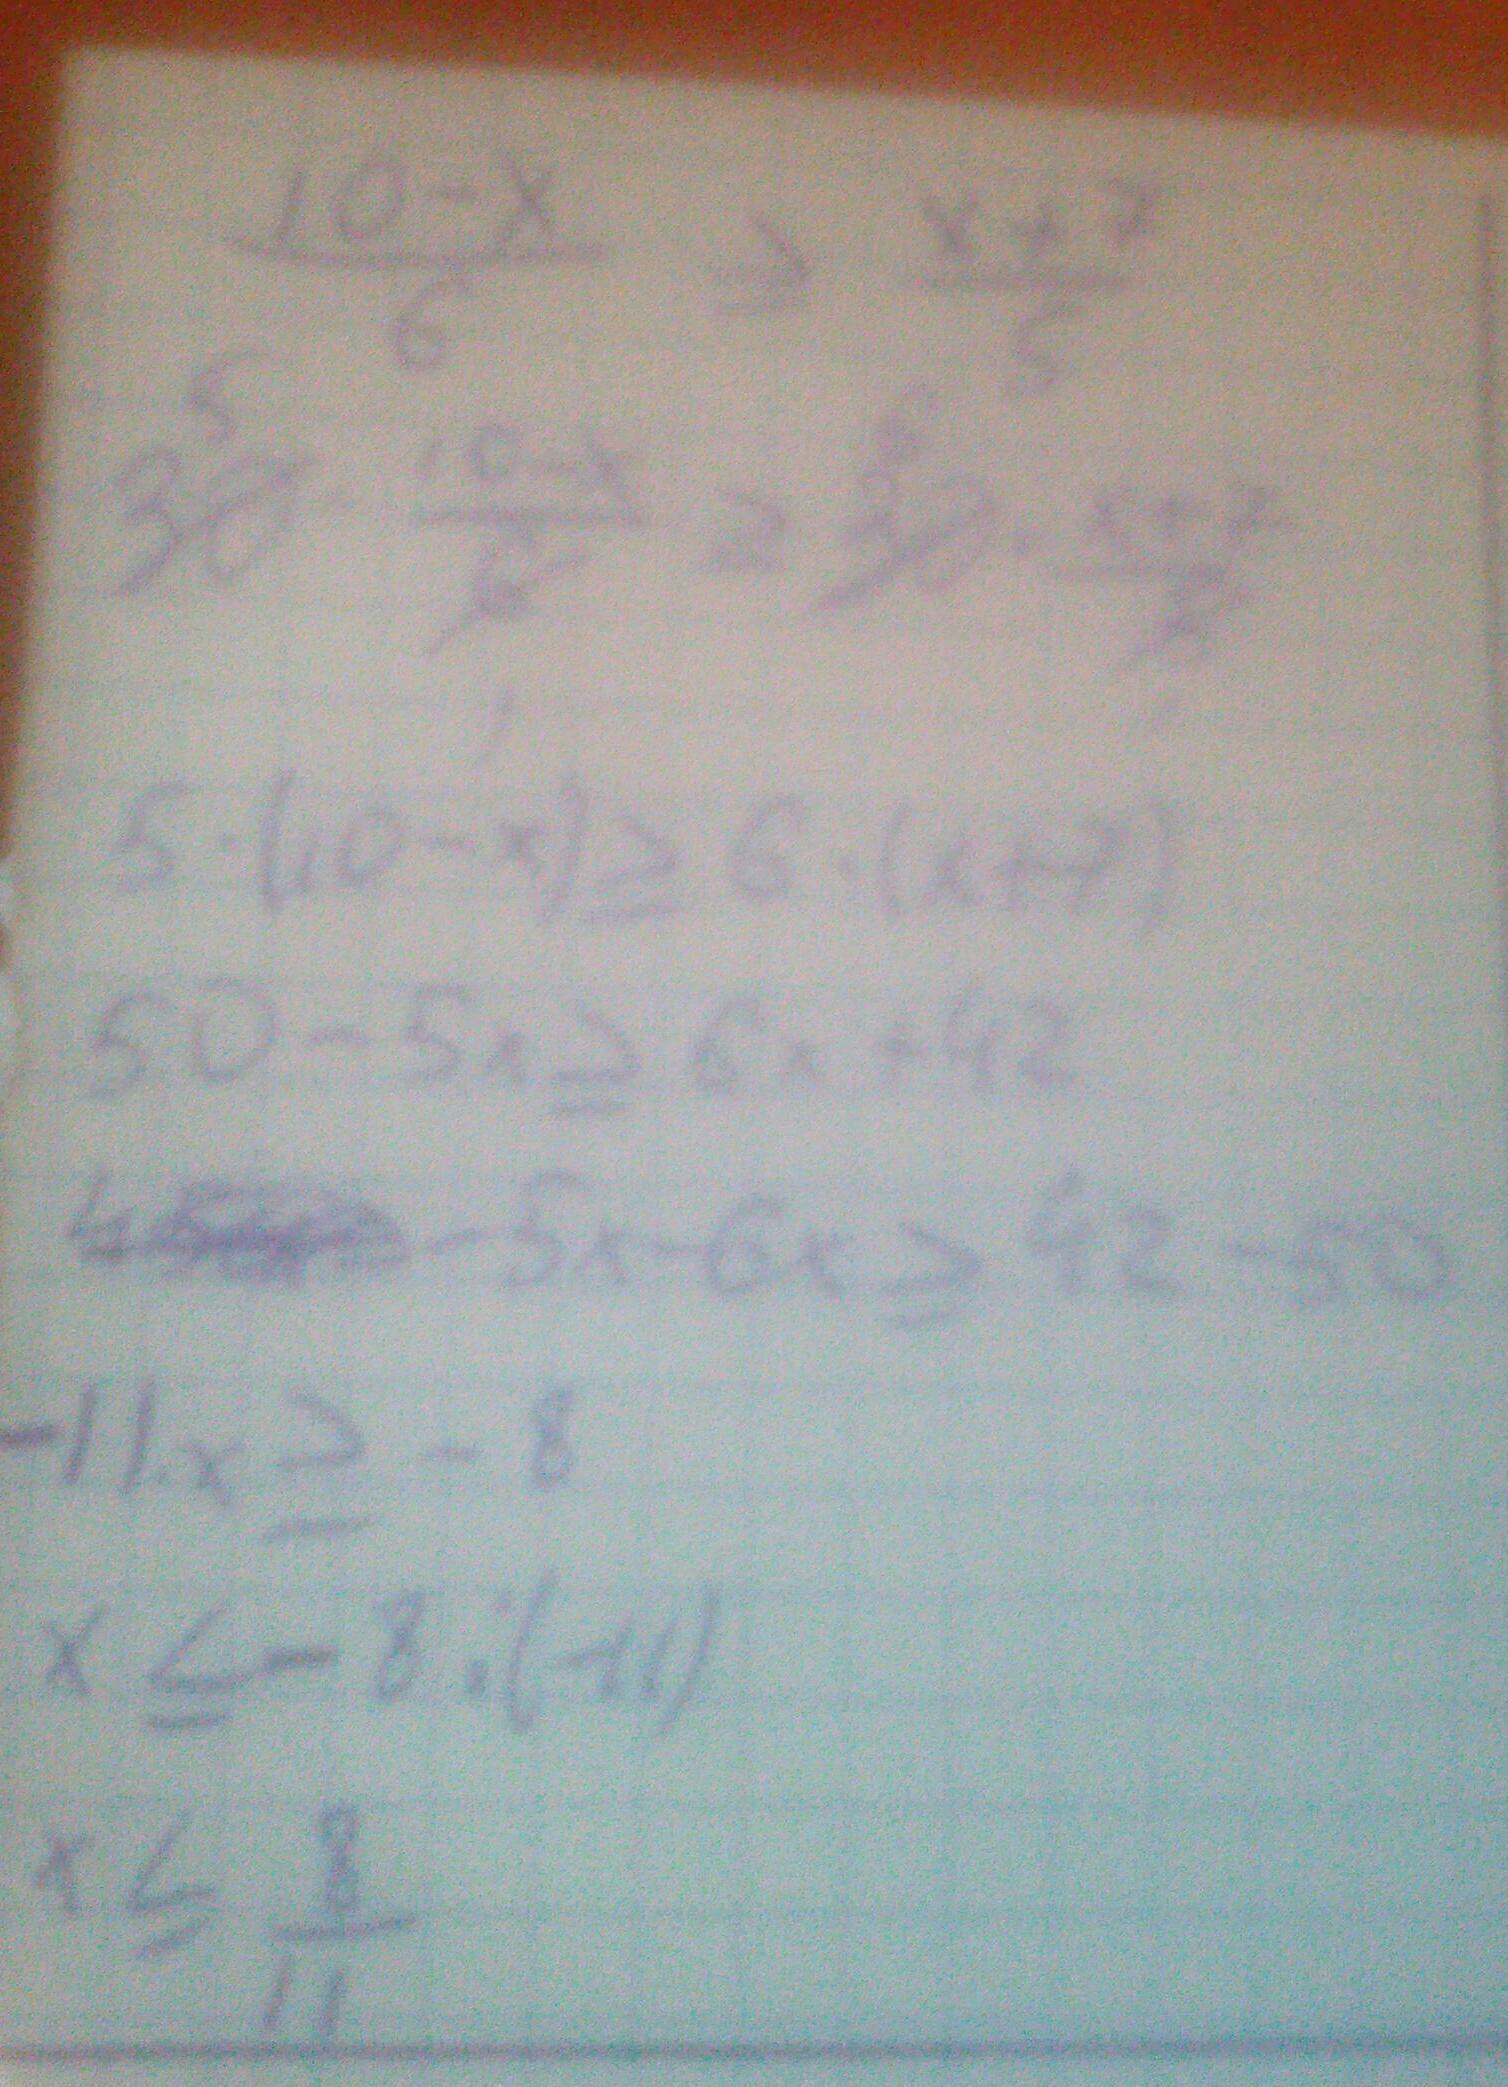 10-x/6 ≥ x+7/5
5 6
30 · 10-x/6 ≥ 30 · x+7/5
1 1
5·(10-x) ≥ 6·(x+7)
50-5x ≥ 6x+42
-5x-6x ≥ 42-50
-11x ≥ -8
x ≤ -8:(-11)
x ≤ 8/11